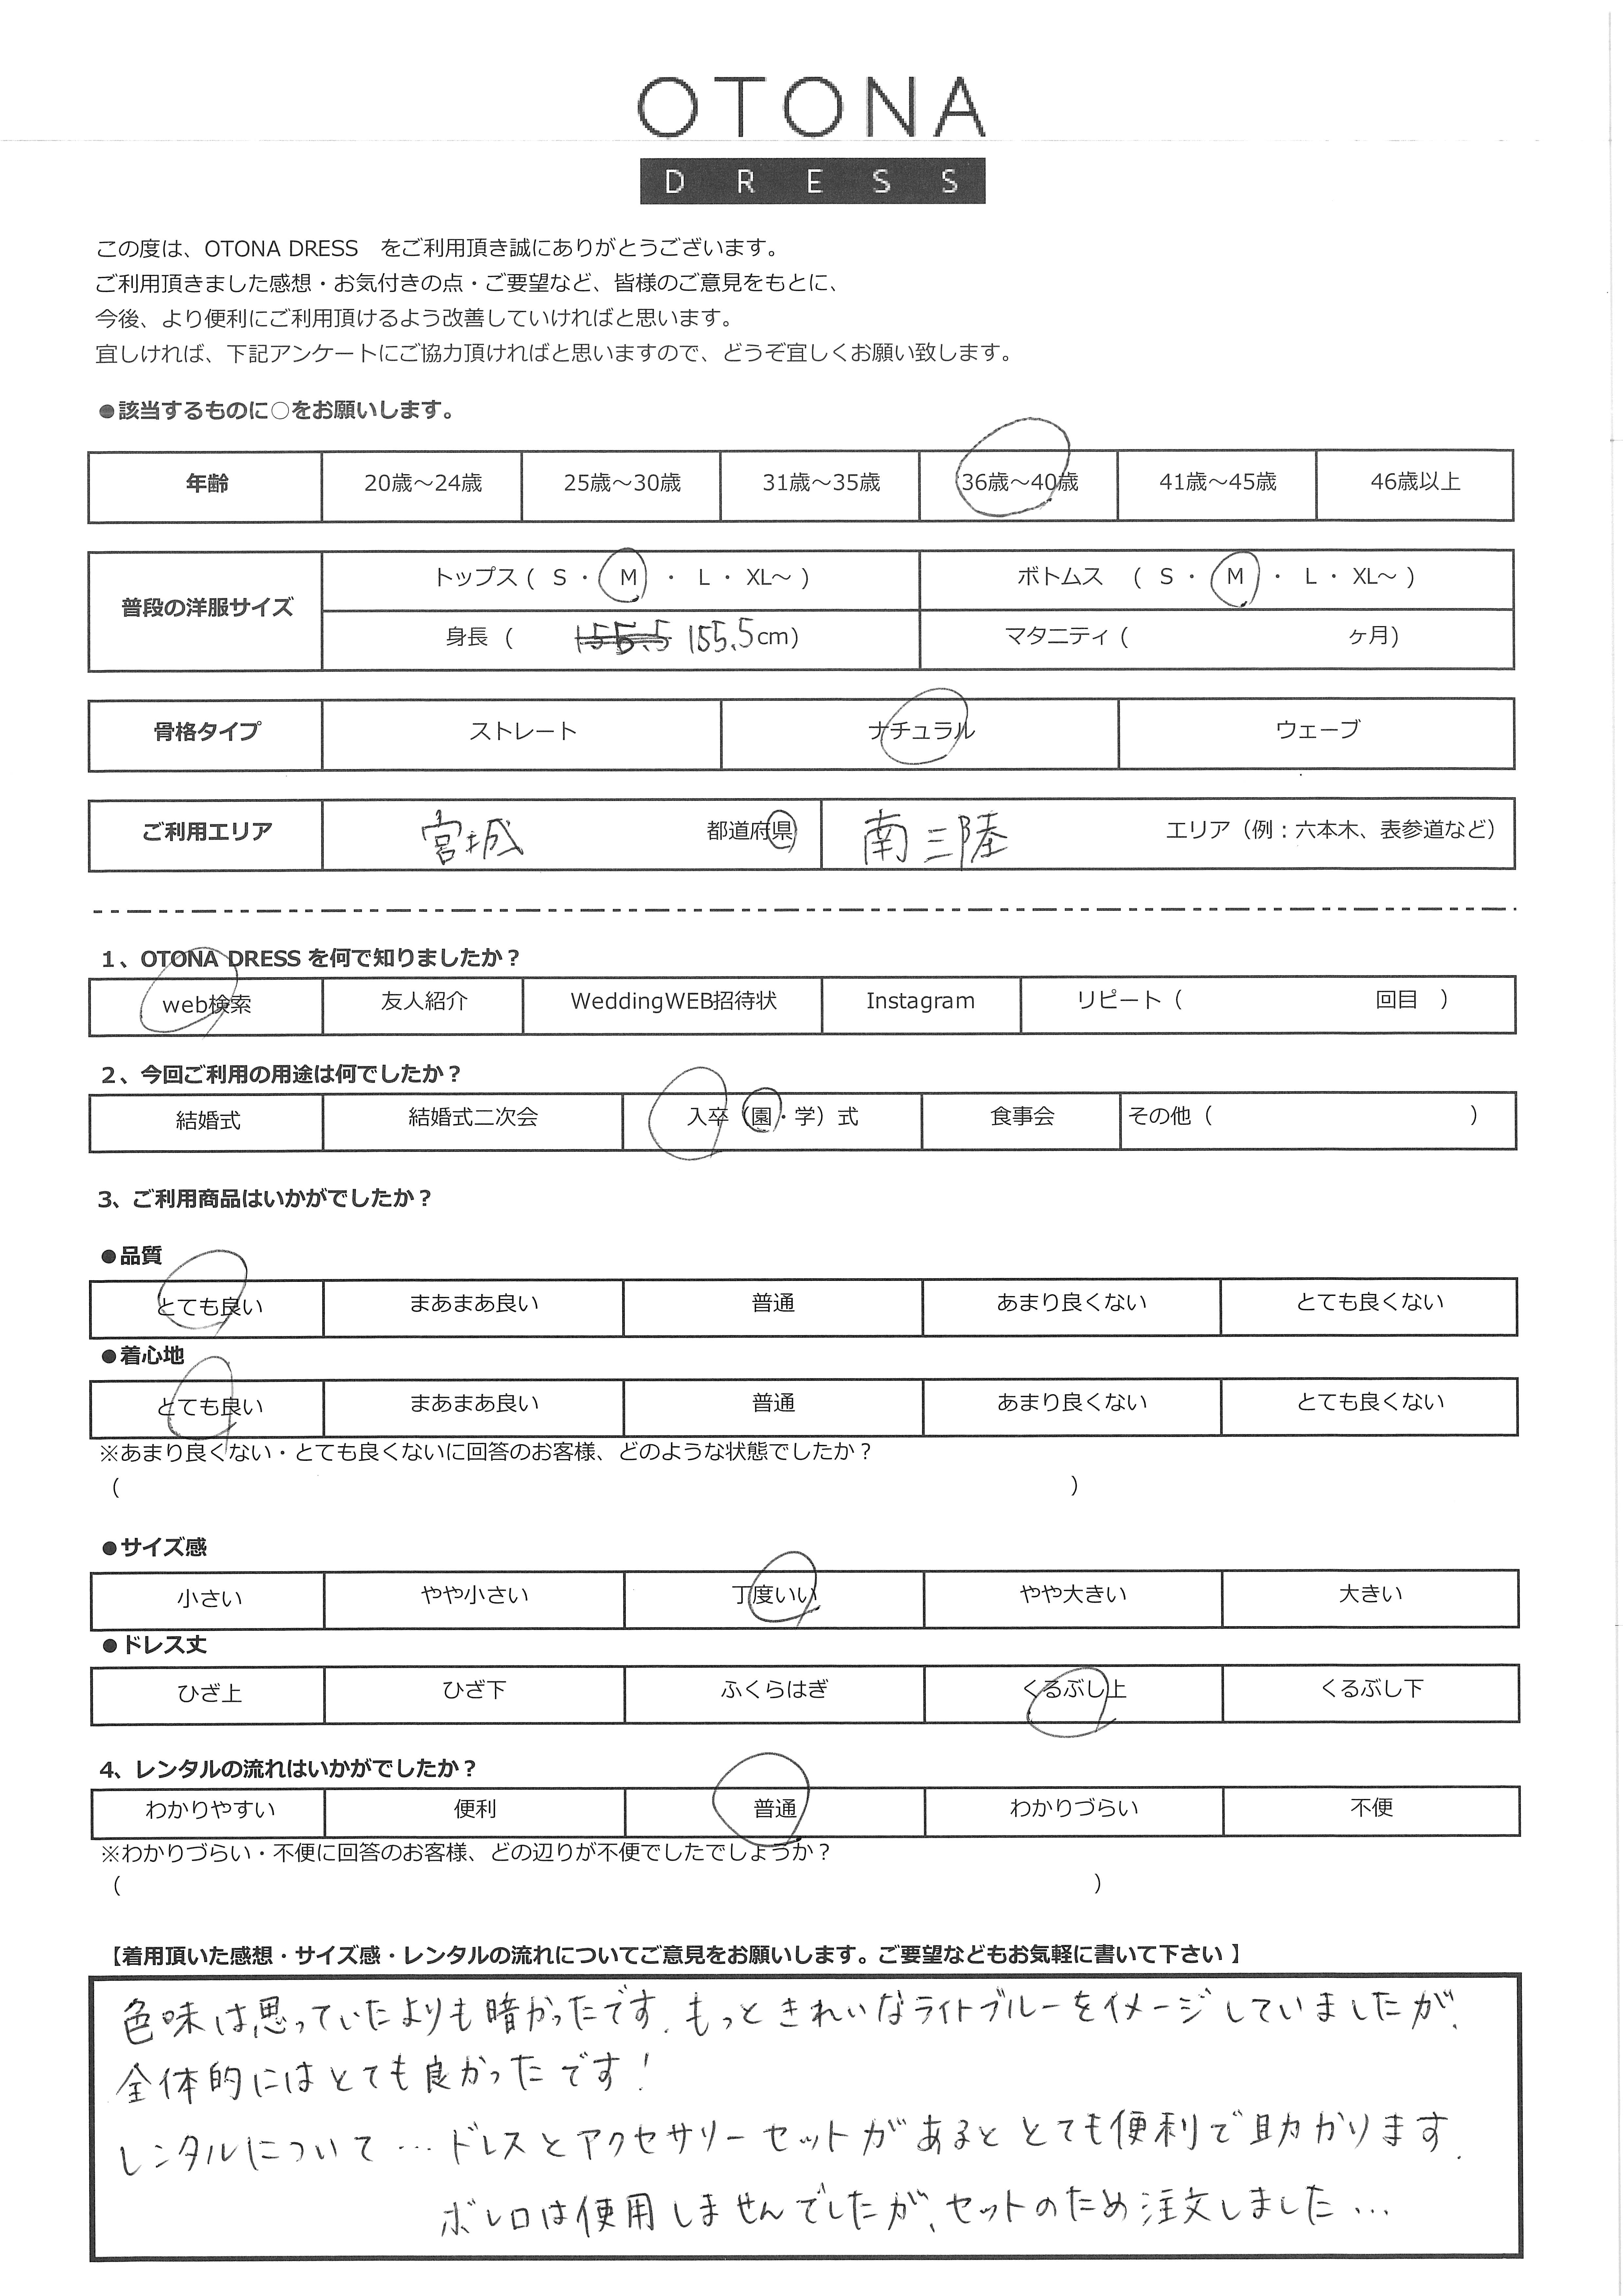 OTONA
DRESS
この度は、OTONA DRESS　をご利用頂き誠にありがとうございます。
ご利用頂きました感想・お気付きの点・ご要望など、皆様のご意見をもとに、
今後、より便利にご利用頂けるよう改善していければと思います。
宜しければ、下記アンケートにご協力頂ければと思いますので、どうぞ宜しくお願い致します。
●該当するものに○をお願いします。
年齢 20歳～24歳 25歳～30歳 31歳～35歳 36歳～40歳 41歳～45歳 46歳以上
普段の洋服サイズ トップス ( S ・ M ・ L ・ XL～ ) ボトムス ( S ・ M ・ L ・ XL～ )
身長 ( 155.5 cm) マタニティ ( ヶ月)
骨格タイプ ストレート ナチュラル ウェーブ
ご利用エリア 宮城 都道府県 南三陸 エリア（例：六本木、表参道など）
1、OTONA DRESS を何で知りましたか？
web検索 友人紹介 WeddingWEB招待状 Instagram リピート（ 回目 ）
2、今回ご利用の用途は何でしたか？
結婚式 結婚式二次会 入卒（園・学）式 食事会 その他（ ）
3、ご利用商品はいかがでしたか？
●品質
とても良い まあまあ良い 普通 あまり良くない とても良くない
●着心地
とても良い まあまあ良い 普通 あまり良くない とても良くない
※あまり良くない・とても良くないに回答のお客様、どのような状態でしたか？
（ ）
●サイズ感
小さい やや小さい 丁度いい やや大きい 大きい
●ドレス丈
ひざ上 ひざ下 ふくらはぎ くるぶし上 くるぶし下
4、レンタルの流れはいかがでしたか？
わかりやすい 便利 普通 わかりづらい 不便
※わかりづらい・不便に回答のお客様、どの辺りが不便でしたでしょうか？
（ ）
【着用頂いた感想・サイズ感・レンタルの流れについてご意見をお願いします。ご要望などもお気軽に書いて下さい 】
色味は思っていたよりも暗かったです。もっときれいなライトブルーをイメージしていましたが、
全体的にはとても良かったです！
レンタルについて…ドレスとアクセサリーセットがあるととても便利で助かります。
ボレロは使用しませんでしたが、セットのため注文しました…